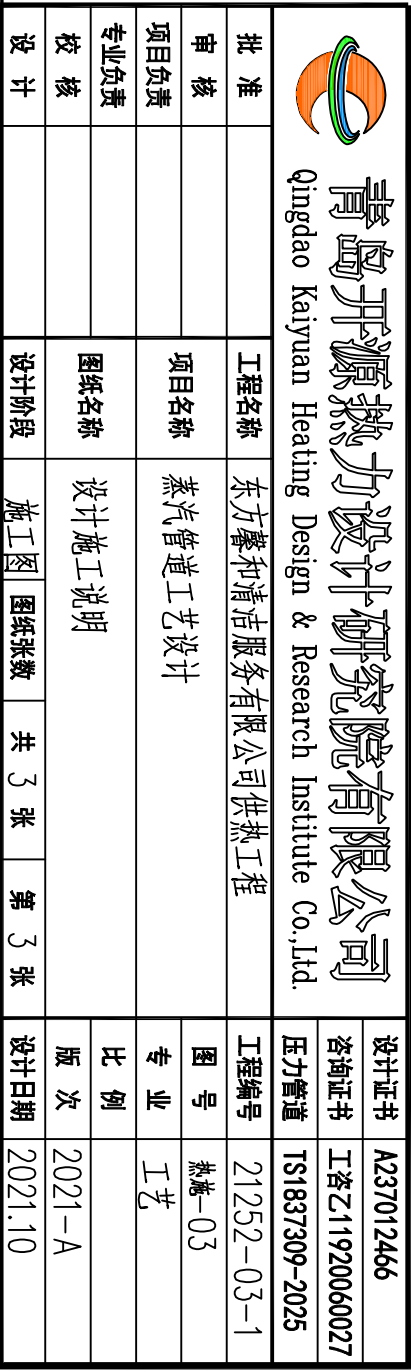 青岛开源热力设计研究院有限公司
Qingdao Kaiyuan Heating Design & Research Institute Co.,Ltd.
设计证书 A237012466
咨询证书 工咨乙11920060027
压力管道 TS1837309-2025
批 准 工程名称 东方馨和清洁服务有限公司供热工程 工程编号 21252-03-1
审 核 图 号 热施-03
项目负责 项目名称 蒸汽管道工艺设计 专 业 工艺
专业负责 比 例
校 核 图纸名称 设计施工说明 版 次 2021-A
设 计 设计阶段 施工图 图纸张数 共 3 张 第 3 张 设计日期 2021.10